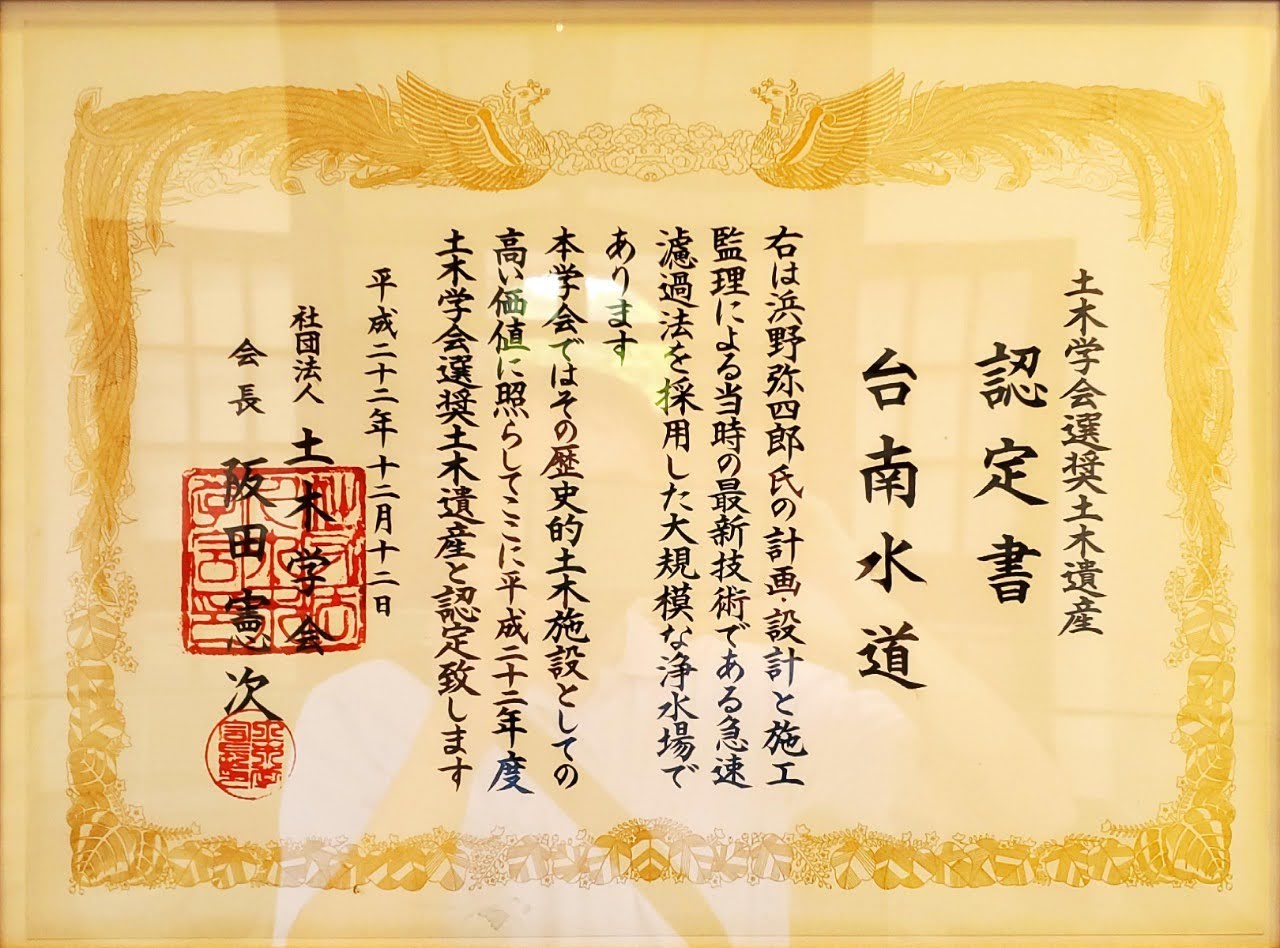 土木学会選奨土木遺産
認定書
台南水道
右は浜野弥四郎氏の計画・設計と施工
監理による当時の最新技術である急速
濾過法を採用した大規模な浄水場で
あります
本学会ではその歴史的土木施設としての
高い価値に照らしてここに平成二十二年度
土木学会選奨土木遺産と認定致します
平成二十二年十二月十二日
社団法人 土木学会
会長 阪田憲次